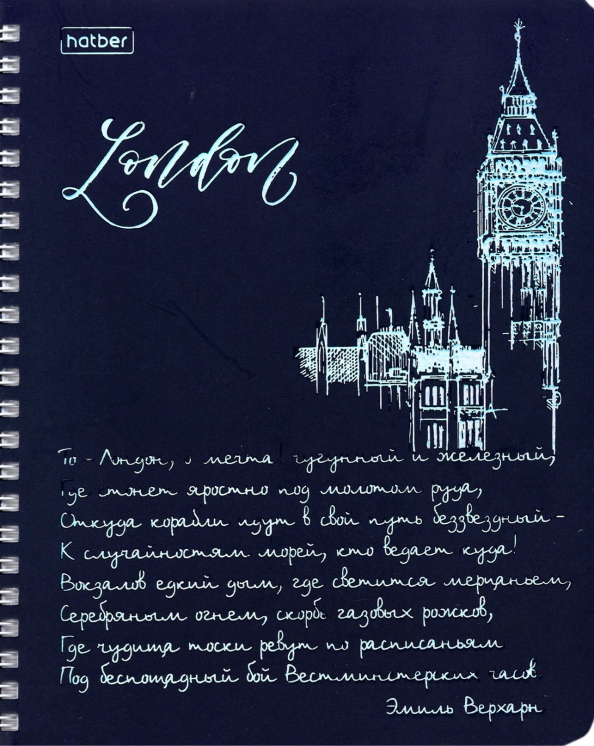 hatber
London
То - Лондон, о мечта! чугунный и железный,
Где стонет яростно под молотом руда,
Откуда корабли идут в свой путь беззвездный -
К случайностям морей, кто ведает куда!
Вокзалов едкий дым, где светится мерцаньем,
Серебряным огнем, скорбь газовых рожков,
Где чудища тоски ревут по расписаньям
Под беспощадный бой Вестминстерских часов.
Эмиль Верхарн